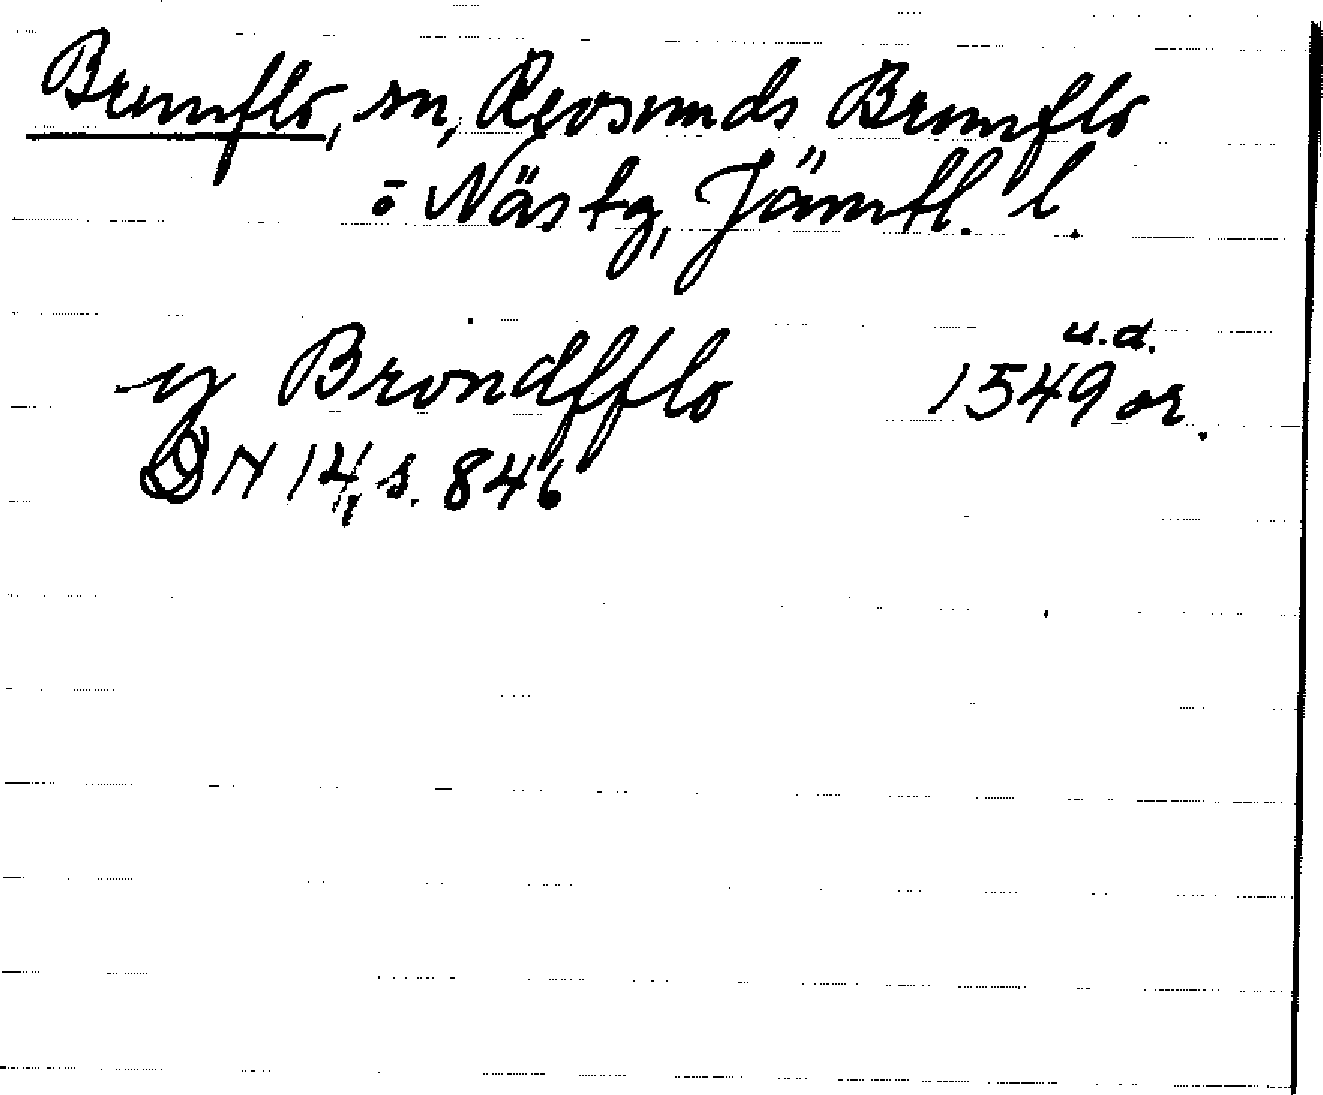 Brunflo, sn, Revsunds Brunflo
o Näs tg, Jämtl. l.
y Brondfflo 1549 u.d. or.
DN 14, s. 846